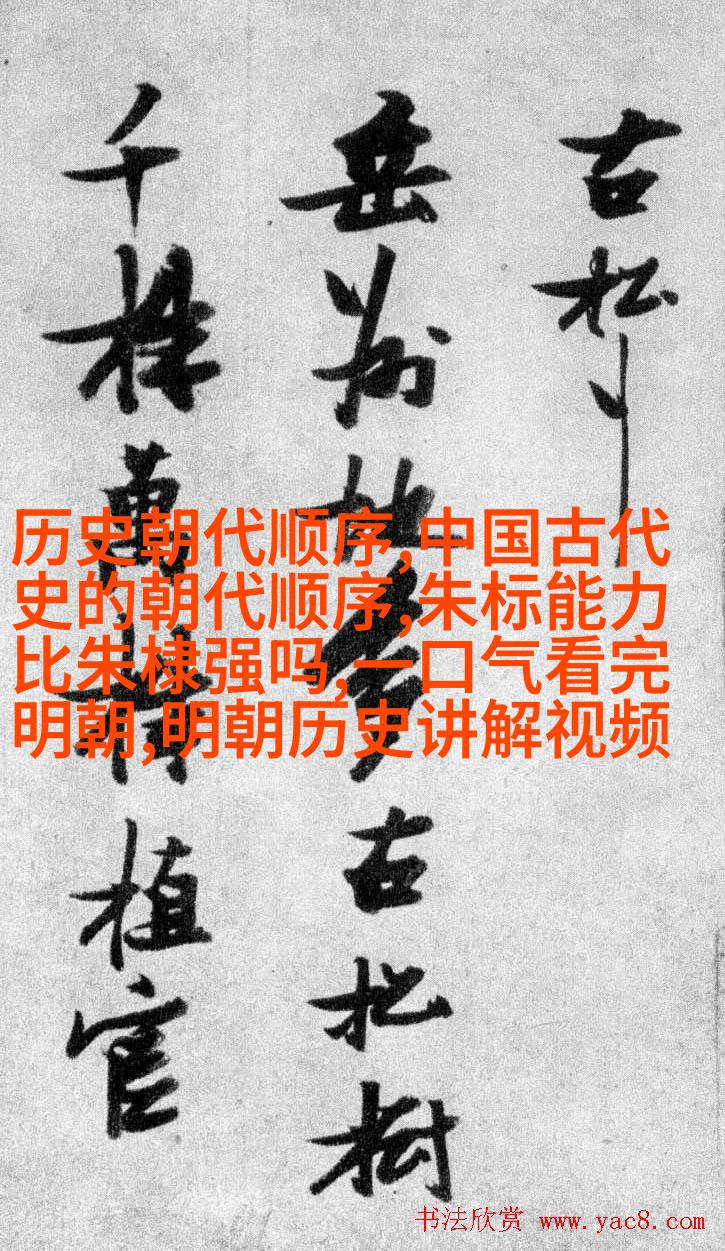 古松
岳州地多古松樹
千株萬植官
历史朝代顺序,中国古代
史的朝代顺序,朱标能力
比朱棣强吗,一口气看完
明朝,明朝历史讲解视频
书法欣赏 www.yac8.com